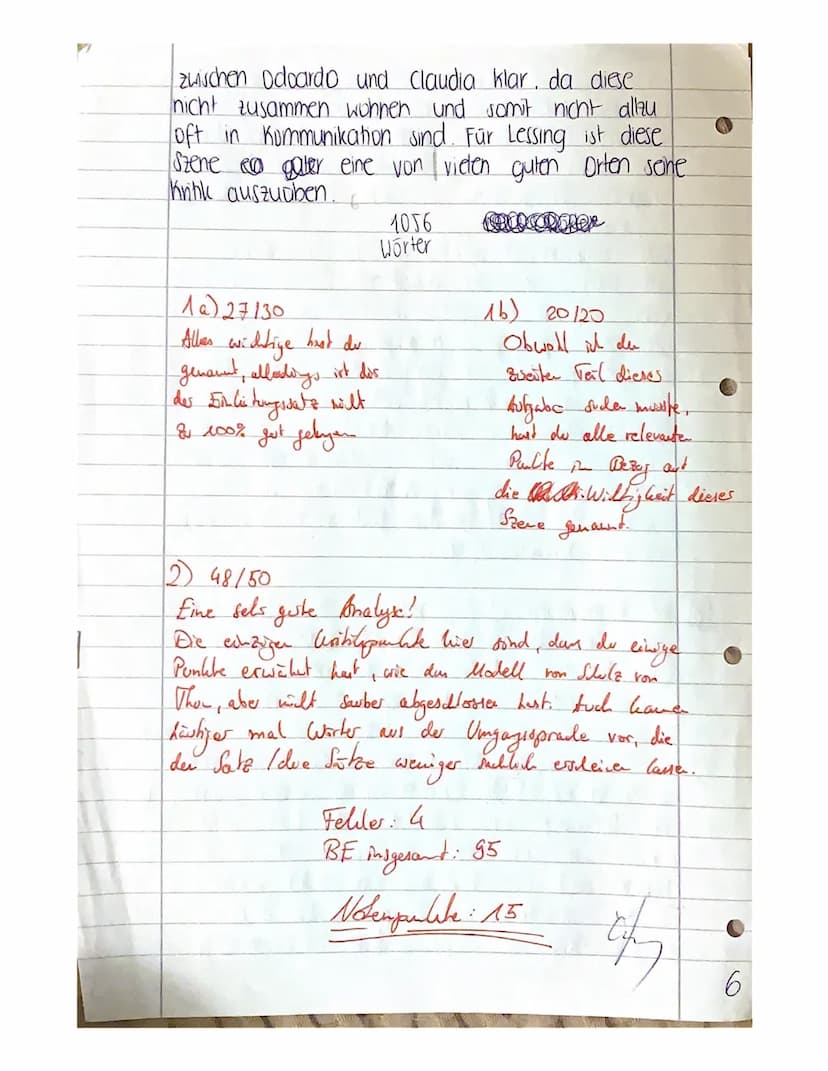 zwischen Odoardo und Claudia klar, da diese
nicht zusammen wohnen und somit nicht allzu
oft in Kommunikation sind. Für Lessing ist diese
Szene eine von vielen guten Orten seine
Kritik auszuüben.
1056
Wörter
1a) 27/30
Alles wichtige hast du
genannt, allerdings ist das
der Einleitungssatz nicht
zu 100% gut gelungen
1b) 20/20
Obwohl ich den
zweiten Teil dieses
Aufgabe suchen musste,
hast du alle relevanten
Punkte in Bezug auf
die Wichtigkeit dieses
Szene genannt.
2) 48/50
Eine sehr gute Analyse!
Die einzigen Kritikpunkte hier sind, dass du einige
Punkte erwähnt hast, wie das Modell von Schulz von
Thun, aber nicht sauber abgeschlossen hast. Auch kamen
häufiger mal Wörter aus der Umgangssprache vor, die
den Satz / die Sätze weniger sachlich erscheinen lassen.
Fehler: 4
BE insgesamt: 95
Notenpunkte: 15
6